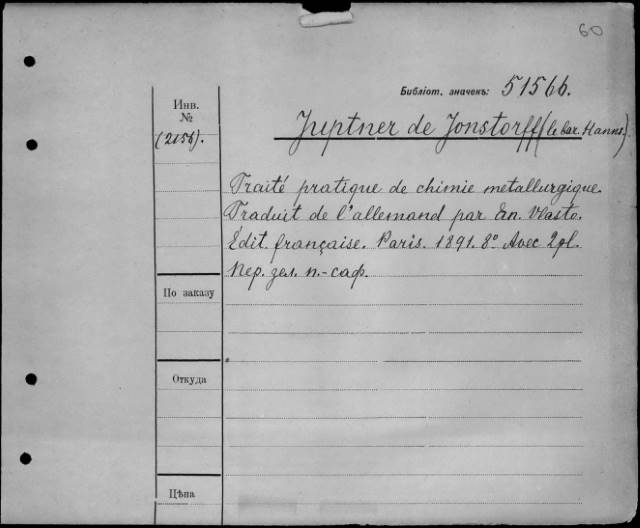 60
Библіот. значекъ: 51566.
Инв.
№
(2156).
Juptner de Jonstorff (le bar. Hanns.)
Traité pratique de chimie metallurgique.
Traduit de l'allemand par En. Vlasto.
Édit. française. Paris. 1891. 8° Avec 2 pl.
Пер. зел. п.-саф.
По заказу
Откуда
Цѣна